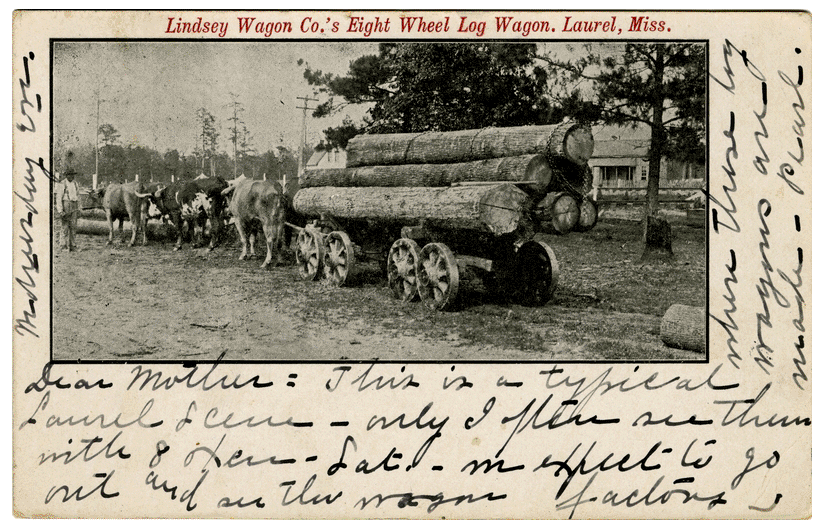 Lindsey Wagon Co.'s Eight Wheel Log Wagon. Laurel, Miss.
Dear Mother = This is a typical
Laurel Scene - only I often see them
with 8 oxen - Sat. - m expect to go
out and see the wagon factory
where those log
wagons are
made - Pearl.
Wednesday eve.